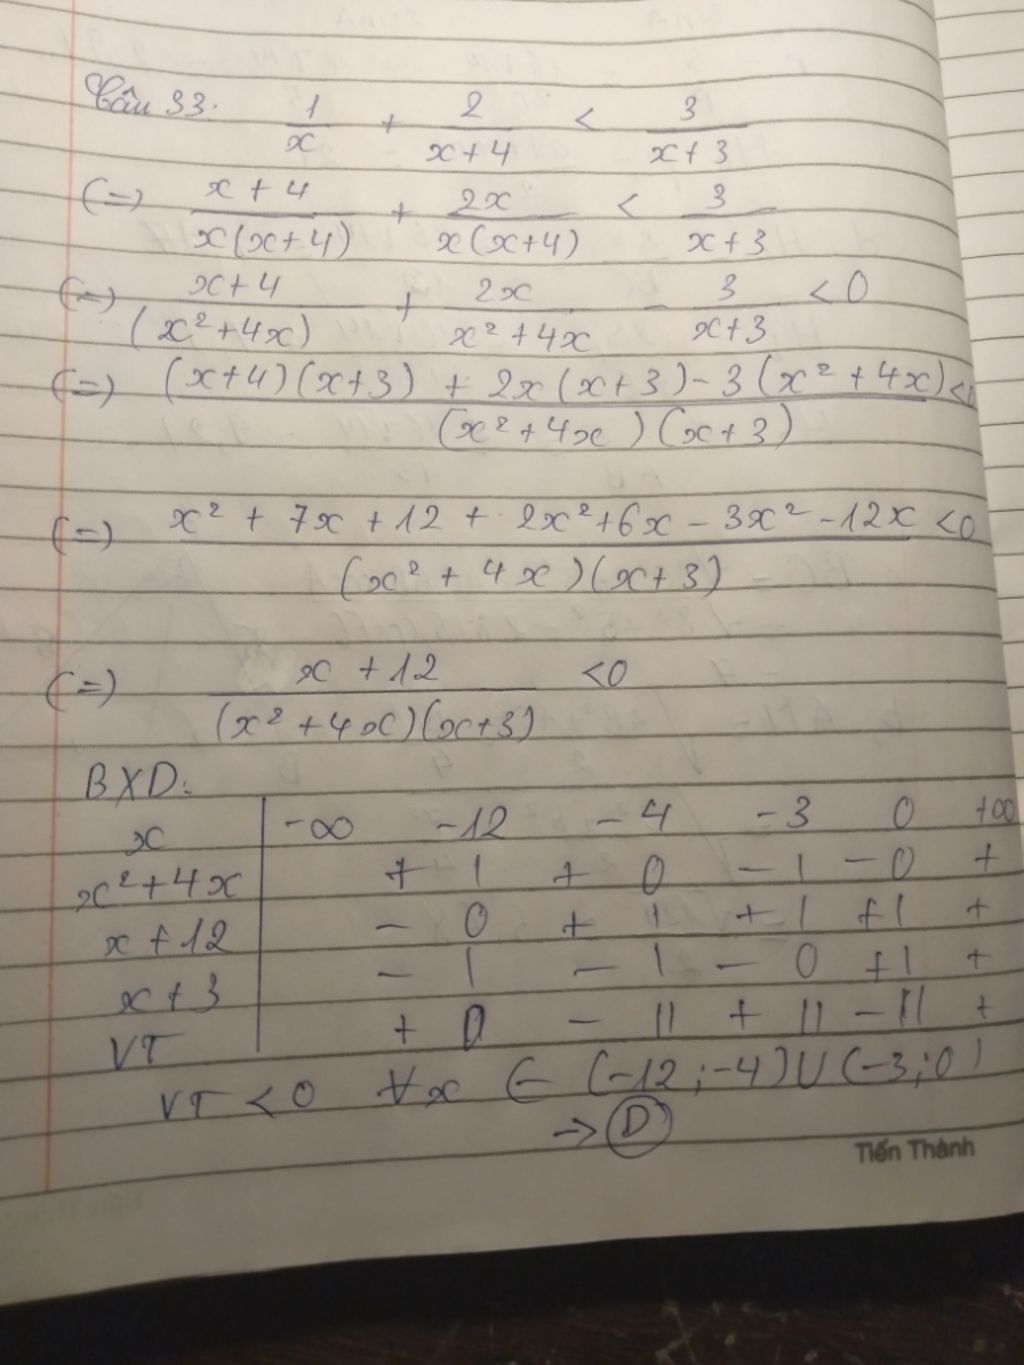 Câu 33. 1/x + 2/(x+4) < 3/(x+3)
(=) (x+4)/(x(x+4)) + 2x/(x(x+4)) < 3/(x+3)
(=) (x+4)/(x²+4x) + 2x/(x²+4x) - 3/(x+3) < 0
(=) ((x+4)(x+3) + 2x(x+3) - 3(x²+4x))/((x²+4x)(x+3)) < 0
(=) (x² + 7x + 12 + 2x² + 6x - 3x² - 12x)/((x² + 4x)(x+3)) < 0
(=) (x + 12)/((x²+4x)(x+3)) < 0
BXD:
x | -∞ -12 -4 -3 0 +∞
x²+4x | + | + 0 - | - 0 +
x+12 | - 0 + | + | + | +
x+3 | - | - | - 0 + | +
VT | + 0 - || + || - || +
VT < 0 ∀x ∈ (-12;-4)∪(-3;0)
→ D
Tiến Thành